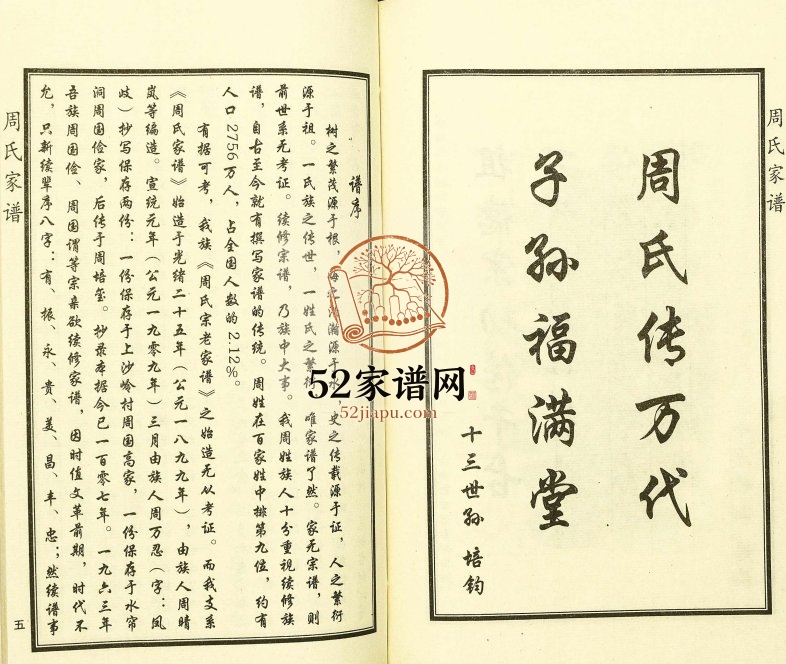 周氏家谱
周氏传万代
子孙福满堂
十三世孙 培钧
谱序
树之繁茂源于根,海之浩瀚源于水,史之传载源于证,人之繁衍
源于祖。一氏族之传世,一姓氏之繁衍,唯家谱了然。家无宗谱,则
前世系无考证。续修宗谱,乃族中大事。我周姓族人十分重视续修族
谱,自古至今就有撰写家谱的传统。周姓在百家姓中排第九位,约有
人口2756万人,占全国人数的2.12%。
有据可考,我族《周氏宗老家谱》之始造无从考证。而我支系
《周氏家谱》始造于光绪二十五年(公元一八九九年),由族人周晴
岚等编造。宣统元年(公元一九零九年)三月由族人周万忍(字:凤
岐)抄写保存两份:一份保存于上沙岭村周国高家,一份保存于水帘
洞周国俭家,后传于周培玺。抄录本据今已一百零七年。一九六三年
吾族周国俭、周国谓等宗亲欲续修家谱,因时值文革前期,时代不
允,只新续辈序八字:有、振、永、贵、美、昌、丰、忠;然续谱事
周氏家谱
五
52家谱网
52jiapu.com